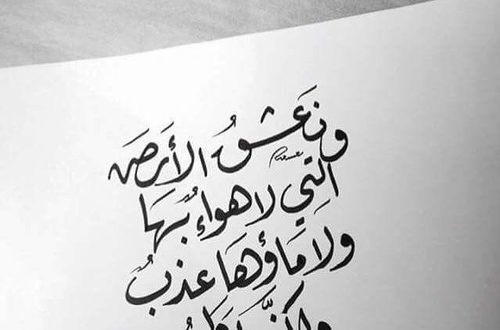 ونَعشقُ الأرضَ
التي لا هواءٌ بهَا
ولا مَاؤهَا عذبٌ